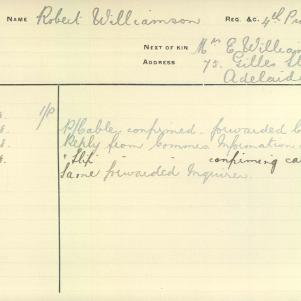 NAME Robert Williamson REG. &C. 4th Pi
NEXT OF KIN Mrs E. William
ADDRESS 75. Gilles St
Adelaide
1/P P/Cable confirmed - forwarded
8. Reply from Commrs Information
4. "Slip" confirming ca
Same forwarded Inquirer.